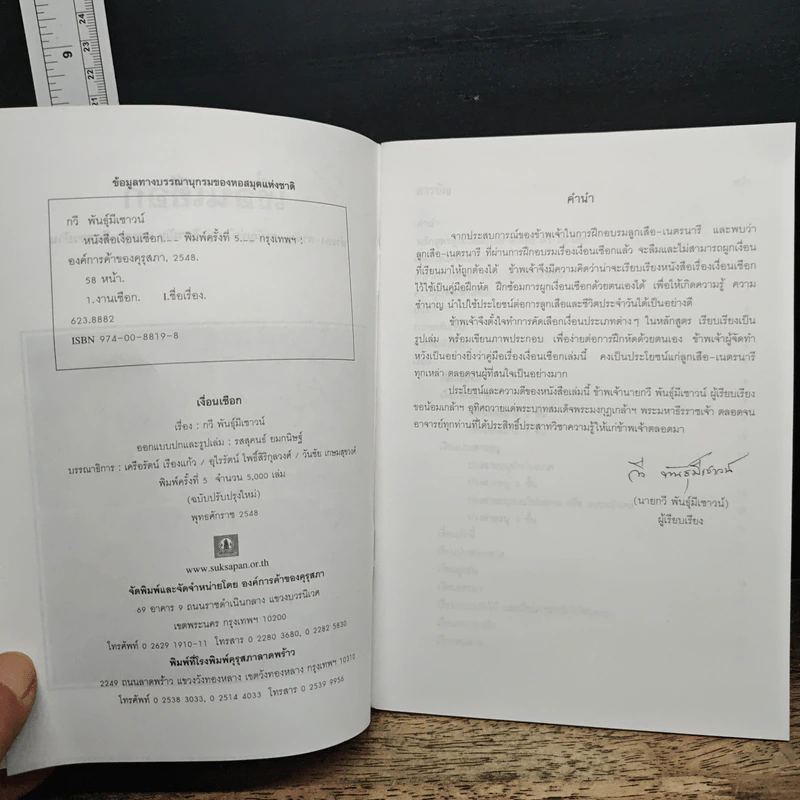 9
24
23
22
21
ข้อมูลทางบรรณานุกรมของหอสมุดแห่งชาติ
กวี พันธุ์มีเชาวน์
หนังสือเงื่อนเชือก.-- พิมพ์ครั้งที่ 5.-- กรุงเทพฯ :
องค์การค้าของคุรุสภา, 2548.
58 หน้า.
1.งานเชือก. I.ชื่อเรื่อง.
623.8882
ISBN 974-00-8819-8
เงื่อนเชือก
เรื่อง : กวี พันธุ์มีเชาวน์
ออกแบบปกและรูปเล่ม : รสสุคนธ์ ยมกนิษฐ์
บรรณาธิการ : เครือรัตน์ เรืองแก้ว / อุไรรัตน์ โพธิ์สิริกุลวงศ์ / วันชัย เกษมสุรวงศ์
พิมพ์ครั้งที่ 5 จำนวน 5,000 เล่ม
(ฉบับปรับปรุงใหม่)
พุทธศักราช 2548
www.suksapan.or.th
จัดพิมพ์และจัดจำหน่ายโดย องค์การค้าของคุรุสภา
69 อาคาร 9 ถนนราชดำเนินกลาง แขวงบวรนิเวศ
เขตพระนคร กรุงเทพฯ 10200
โทรศัพท์ 0 2629 1910-11 โทรสาร 0 2280 3680, 0 2282 5830
พิมพ์ที่โรงพิมพ์คุรุสภาลาดพร้าว
2249 ถนนลาดพร้าว แขวงวังทองหลาง เขตวังทองหลาง กรุงเทพฯ 10310
โทรศัพท์ 0 2538 3033, 0 2514 4033 โทรสาร 0 2539 9956
คำนำ
จากประสบการณ์ของข้าพเจ้าในการฝึกอบรมลูกเสือ-เนตรนารี และพบว่า
ลูกเสือ-เนตรนารี ที่ผ่านการฝึกอบรมเรื่องเงื่อนเชือกแล้ว จะลืมและไม่สามารถผูกเงื่อน
ที่เรียนมาให้ถูกต้องได้ ข้าพเจ้าจึงมีความคิดว่าน่าจะเรียบเรียงหนังสือเรื่องเงื่อนเชือก
ไว้ใช้เป็นคู่มือฝึกหัด ฝึกซ้อมการผูกเงื่อนเชือกด้วยตนเองได้ เพื่อให้เกิดความรู้ ความ
ชำนาญ นำไปใช้ประโยชน์ต่อการลูกเสือและชีวิตประจำวันได้เป็นอย่างดี
ข้าพเจ้าจึงตั้งใจทำการคัดเลือกเงื่อนประเภทต่างๆ ในหลักสูตร เรียบเรียงเป็น
รูปเล่ม พร้อมเขียนภาพประกอบ เพื่อง่ายต่อการฝึกหัดด้วยตนเอง ข้าพเจ้าผู้จัดทำ
หวังเป็นอย่างยิ่งว่าคู่มือเรื่องเงื่อนเชือกเล่มนี้ คงเป็นประโยชน์แก่ลูกเสือ-เนตรนารี
ทุกเหล่า ตลอดจนผู้ที่สนใจเป็นอย่างมาก
ประโยชน์และความดีของหนังสือเล่มนี้ ข้าพเจ้านายกวี พันธุ์มีเชาวน์ ผู้เรียบเรียง
ขอน้อมเกล้าฯ อุทิศถวายแด่พระบาทสมเด็จพระมงกุฎเกล้าฯ พระมหาธีรราชเจ้า ตลอดจน
อาจารย์ทุกท่านที่ได้ประสิทธิ์ประสาทวิชาความรู้ให้แก่ข้าพเจ้าตลอดมา
กวี พันธุ์มีเชาวน์
(นายกวี พันธุ์มีเชาวน์)
ผู้เรียบเรียง